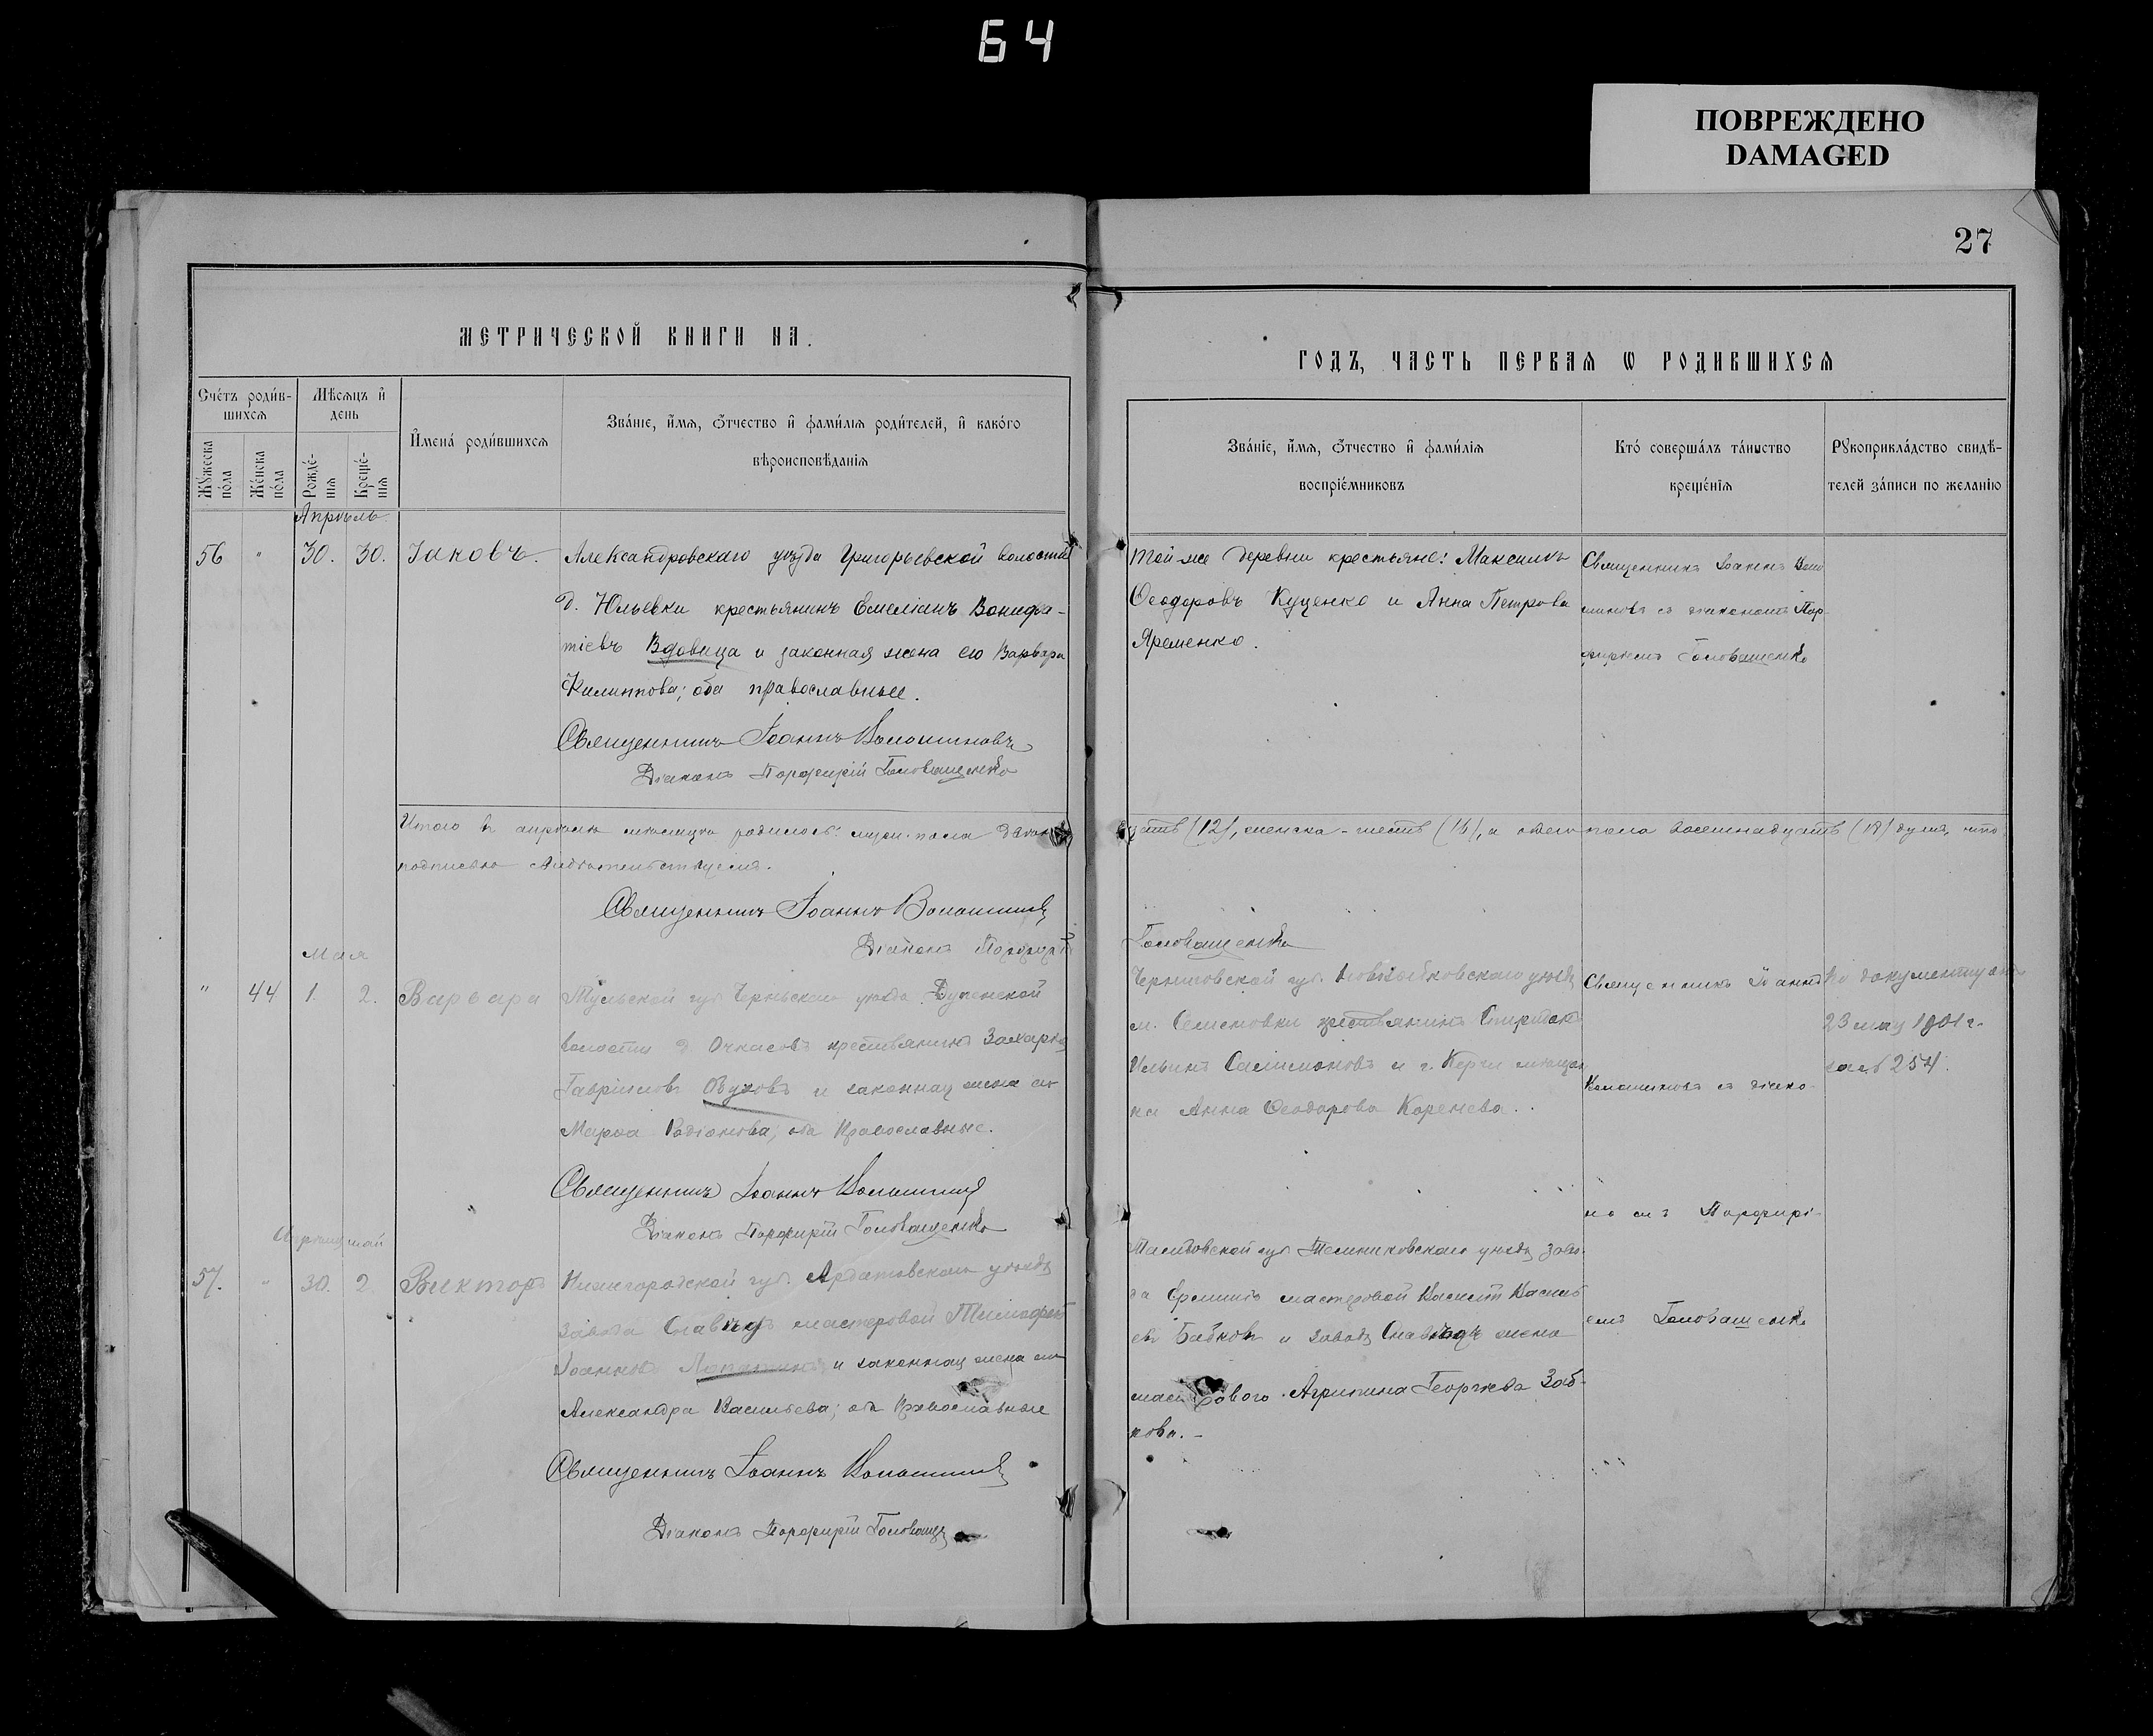 64
ПОВРЕЖДЕНО
DAMAGED
27
МЕТРИЧЕСКОЙ КНИГИ НА
ГОДЪ, ЧАСТЬ ПЕРВАѦ Ѡ РОДИВШИХСѦ
Счетъ родив-
шихсѧ
Мѣсѧцъ и
день
Мужеска
пола
Женска
пола
Рожде-
нїѧ
Креще-
нїѧ
Имена родившихсѧ
Званїе, имѧ, ѿчество и фамилїѧ родителей, и какого
вѣроисповѣданїѧ
Званїе, имѧ, ѿчество и фамилїѧ
воспрїемниковъ
Кто совершалъ таинство
крещенїѧ
Рукоприкладство свидѣ-
телей записи по желанїю
Апрѣль
56 " 30. 30. Іаковъ.
Александровскаго уѣзда Григорьевской волости
д. Юльевки крестьянинъ Емеліанъ Вонифа-
тіевъ Вдовица и законная жена его Варвара
Филиппова; оба православные.
Священникъ Іоаннъ Волошиновъ
Діаконъ Порфирій Головащенко
Той-же деревни крестьяне: Максимъ
Ѳеодоровъ Куценко и Анна Петрова
Яременко.
Священникъ Іоаннъ Воло
шиновъ съ діакономъ Пор-
фиріемъ Головащенко
Итого въ апрѣлѣ мѣсяцѣ родилось: муж. пола двѣнад
цать (12), женска - шесть (6), а обоего пола восемнадцать (18) душъ, что
подписью свидѣтельствуемъ.
Священникъ Іоаннъ Волошиновъ
Діаконъ Порфирій
Головащенко
Мая
" 44 1. 2. Варвара
Тульской губ. Чернскаго уѣзда
волости д. крестьянинъ Захарій
Гавріиловъ Обуховъ и законная жена его
Марѳа Родіонова; оба Православные.
Священникъ Іоаннъ Волошиновъ
Діаконъ Порфирій Головащенко
Черниговской губ. Новозыбковскаго уѣзда
м. крестьянинъ
Ильинъ и г. Керчи мѣщан
ка Анна Ѳеодорова Коренева.
Священникъ Іоаннъ
Волошиновъ съ діако-
номъ Порфирі-
емъ Головащенко
По документу отъ
23 мая 1901 г.
за № 254.
Апрѣль Май
57. " 30. 2. Викторъ
Нижегородской губ. Ардатовскаго уѣзда
завода мастеровой Тимофей
Іоанновъ Лопатинъ и законная жена его
Александра Васильева; оба Православные
Священникъ Іоаннъ Волошиновъ
Діаконъ Порфирій Головащ
Тамбовской губ. Темниковскаго уѣзда заво-
да мастеровой Василій Василь
евъ Бабковъ и завода жена
мастерового Агрипина Георгіева Заб-
кова.-